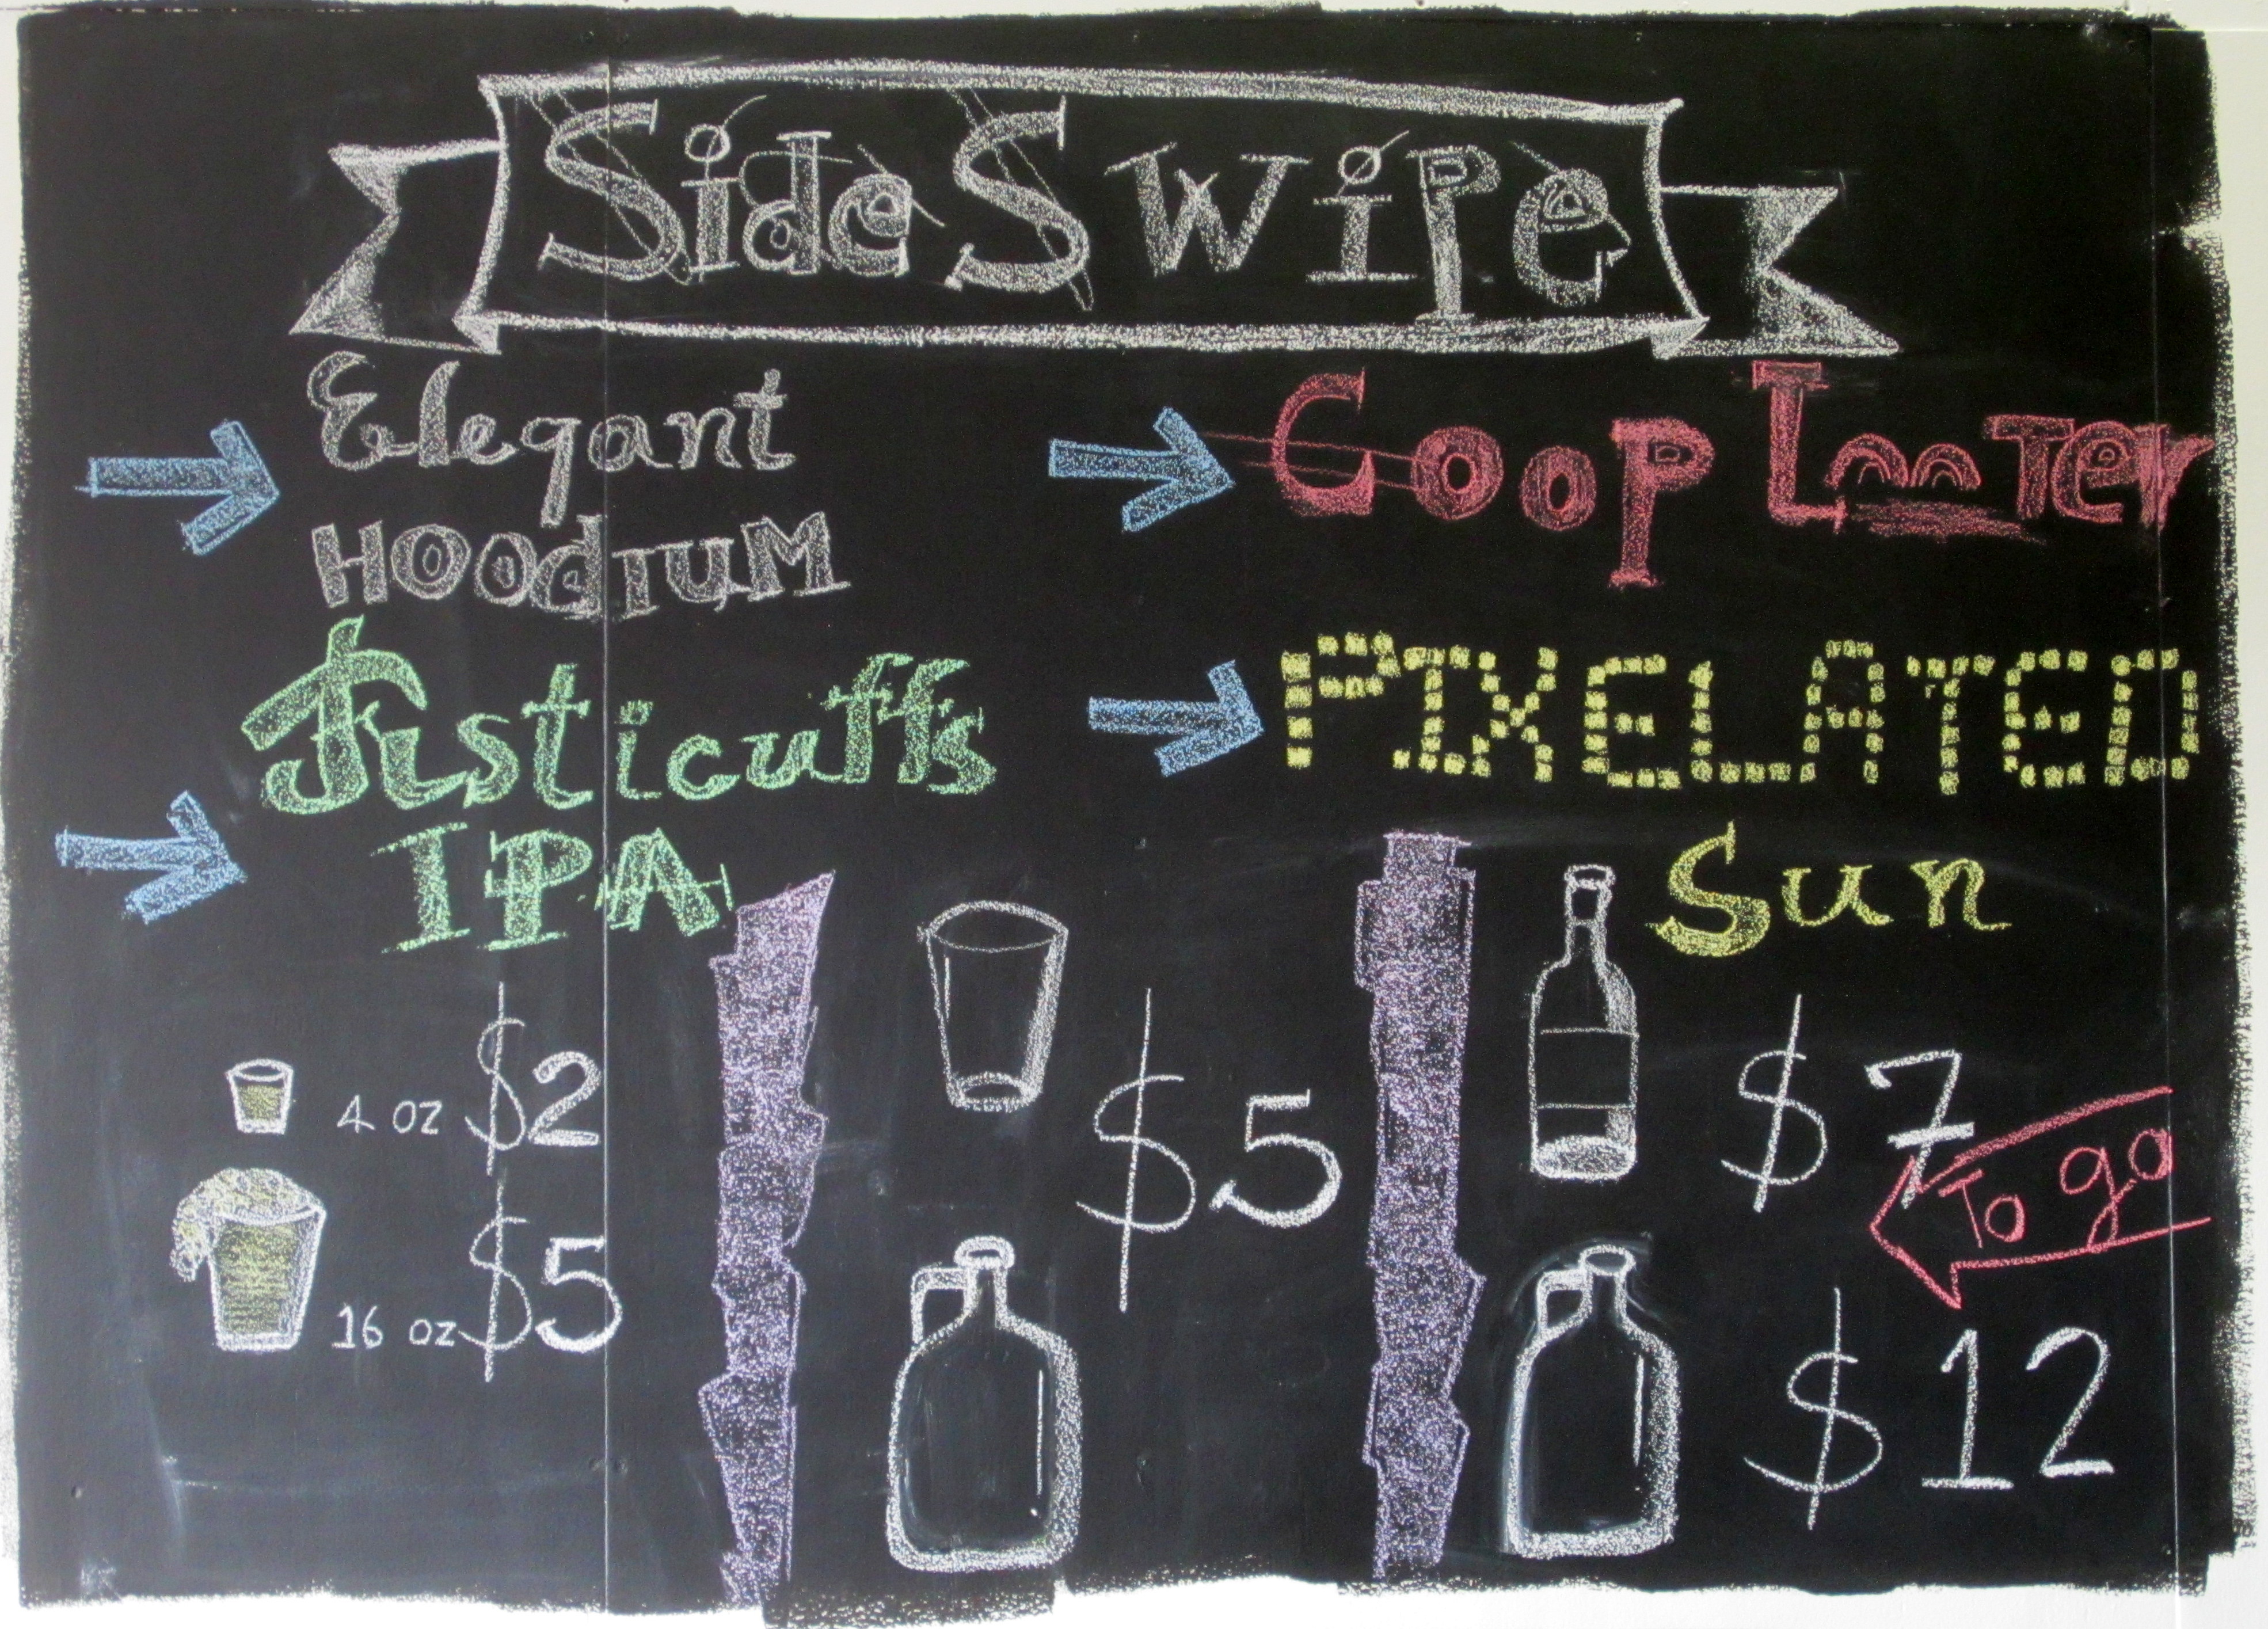 SideSwipe
Elegant
HOODIUM
Fisticuffs
IPA
Coop Looter
PIXELATED
Sun
4 oz $2
16 oz $5
$5
$7
To go
$12